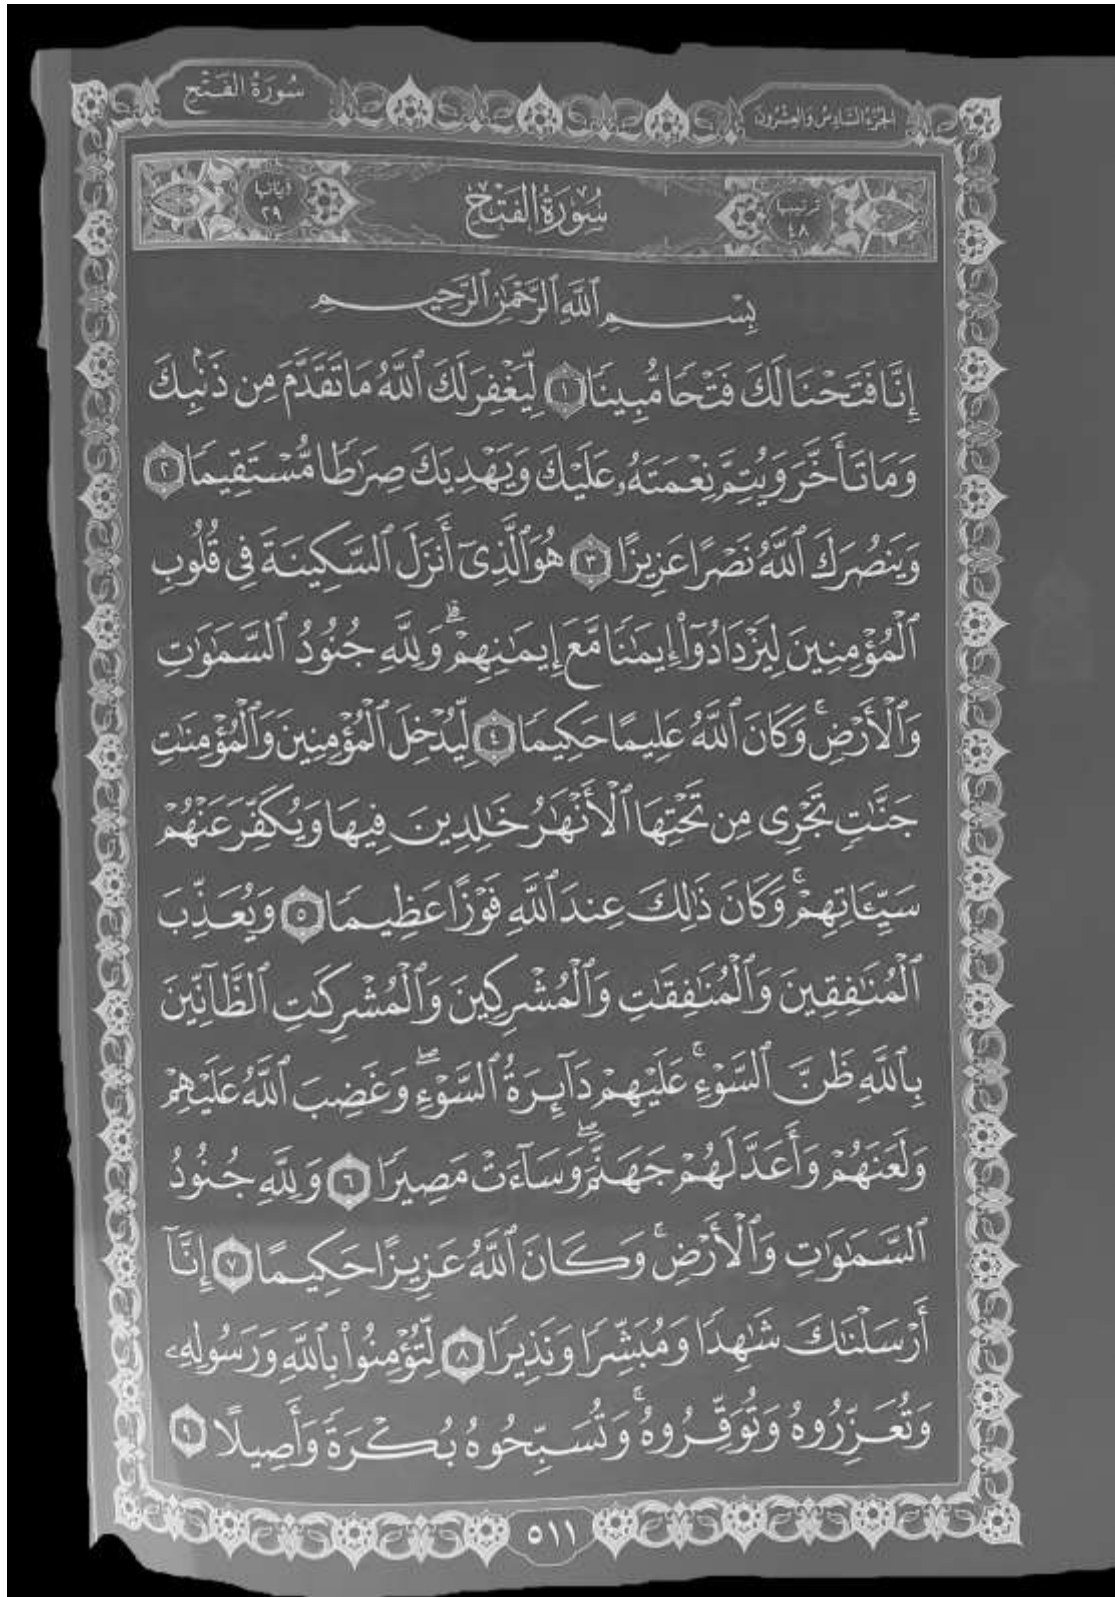 سُورَةُ الفَتْحِ
الجُزْءُ السَّادِسُ وَالعِشْرُونَ
ترتيبها
٤٨
سُورَةُ الفَتْحِ
آياتها
٢٩
بِسْمِ ٱللَّهِ ٱلرَّحْمَٰنِ ٱلرَّحِيمِ
إِنَّا فَتَحْنَا لَكَ فَتْحًا مُّبِينًا ١ لِّيَغْفِرَ لَكَ ٱللَّهُ مَا تَقَدَّمَ مِن ذَنۢبِكَ
وَمَا تَأَخَّرَ وَيُتِمَّ نِعْمَتَهُۥ عَلَيْكَ وَيَهْدِيَكَ صِرَٰطًا مُّسْتَقِيمًا ٢
وَيَنصُرَكَ ٱللَّهُ نَصْرًا عَزِيزًا ٣ هُوَ ٱلَّذِىٓ أَنزَلَ ٱلسَّكِينَةَ فِى قُلُوبِ
ٱلْمُؤْمِنِينَ لِيَزْدَادُوٓا۟ إِيمَٰنًا مَّعَ إِيمَٰنِهِمْ ۗ وَلِلَّهِ جُنُودُ ٱلسَّمَٰوَٰتِ
وَٱلْأَرْضِ ۚ وَكَانَ ٱللَّهُ عَلِيمًا حَكِيمًا ٤ لِّيُدْخِلَ ٱلْمُؤْمِنِينَ وَٱلْمُؤْمِنَٰتِ
جَنَّٰتٍ تَجْرِى مِن تَحْتِهَا ٱلْأَنْهَٰرُ خَٰلِدِينَ فِيهَا وَيُكَفِّرَ عَنْهُمْ
سَيِّـَٔاتِهِمْ ۚ وَكَانَ ذَٰلِكَ عِندَ ٱللَّهِ فَوْزًا عَظِيمًا ٥ وَيُعَذِّبَ
ٱلْمُنَٰفِقِينَ وَٱلْمُنَٰفِقَٰتِ وَٱلْمُشْرِكِينَ وَٱلْمُشْرِكَٰتِ ٱلظَّآنِّينَ
بِٱللَّهِ ظَنَّ ٱلسَّوْءِ ۚ عَلَيْهِمْ دَآئِرَةُ ٱلسَّوْءِ ۖ وَغَضِبَ ٱللَّهُ عَلَيْهِمْ
وَلَعَنَهُمْ وَأَعَدَّ لَهُمْ جَهَنَّمَ ۖ وَسَآءَتْ مَصِيرًا ٦ وَلِلَّهِ جُنُودُ
ٱلسَّمَٰوَٰتِ وَٱلْأَرْضِ ۚ وَكَانَ ٱللَّهُ عَزِيزًا حَكِيمًا ٧ إِنَّآ
أَرْسَلْنَٰكَ شَٰهِدًا وَمُبَشِّرًا وَنَذِيرًا ٨ لِّتُؤْمِنُوا۟ بِٱللَّهِ وَرَسُولِهِۦ
وَتُعَزِّرُوهُ وَتُوَقِّرُوهُ ۚ وَتُسَبِّحُوهُ بُكْرَةً وَأَصِيلًا ٩
٥١١